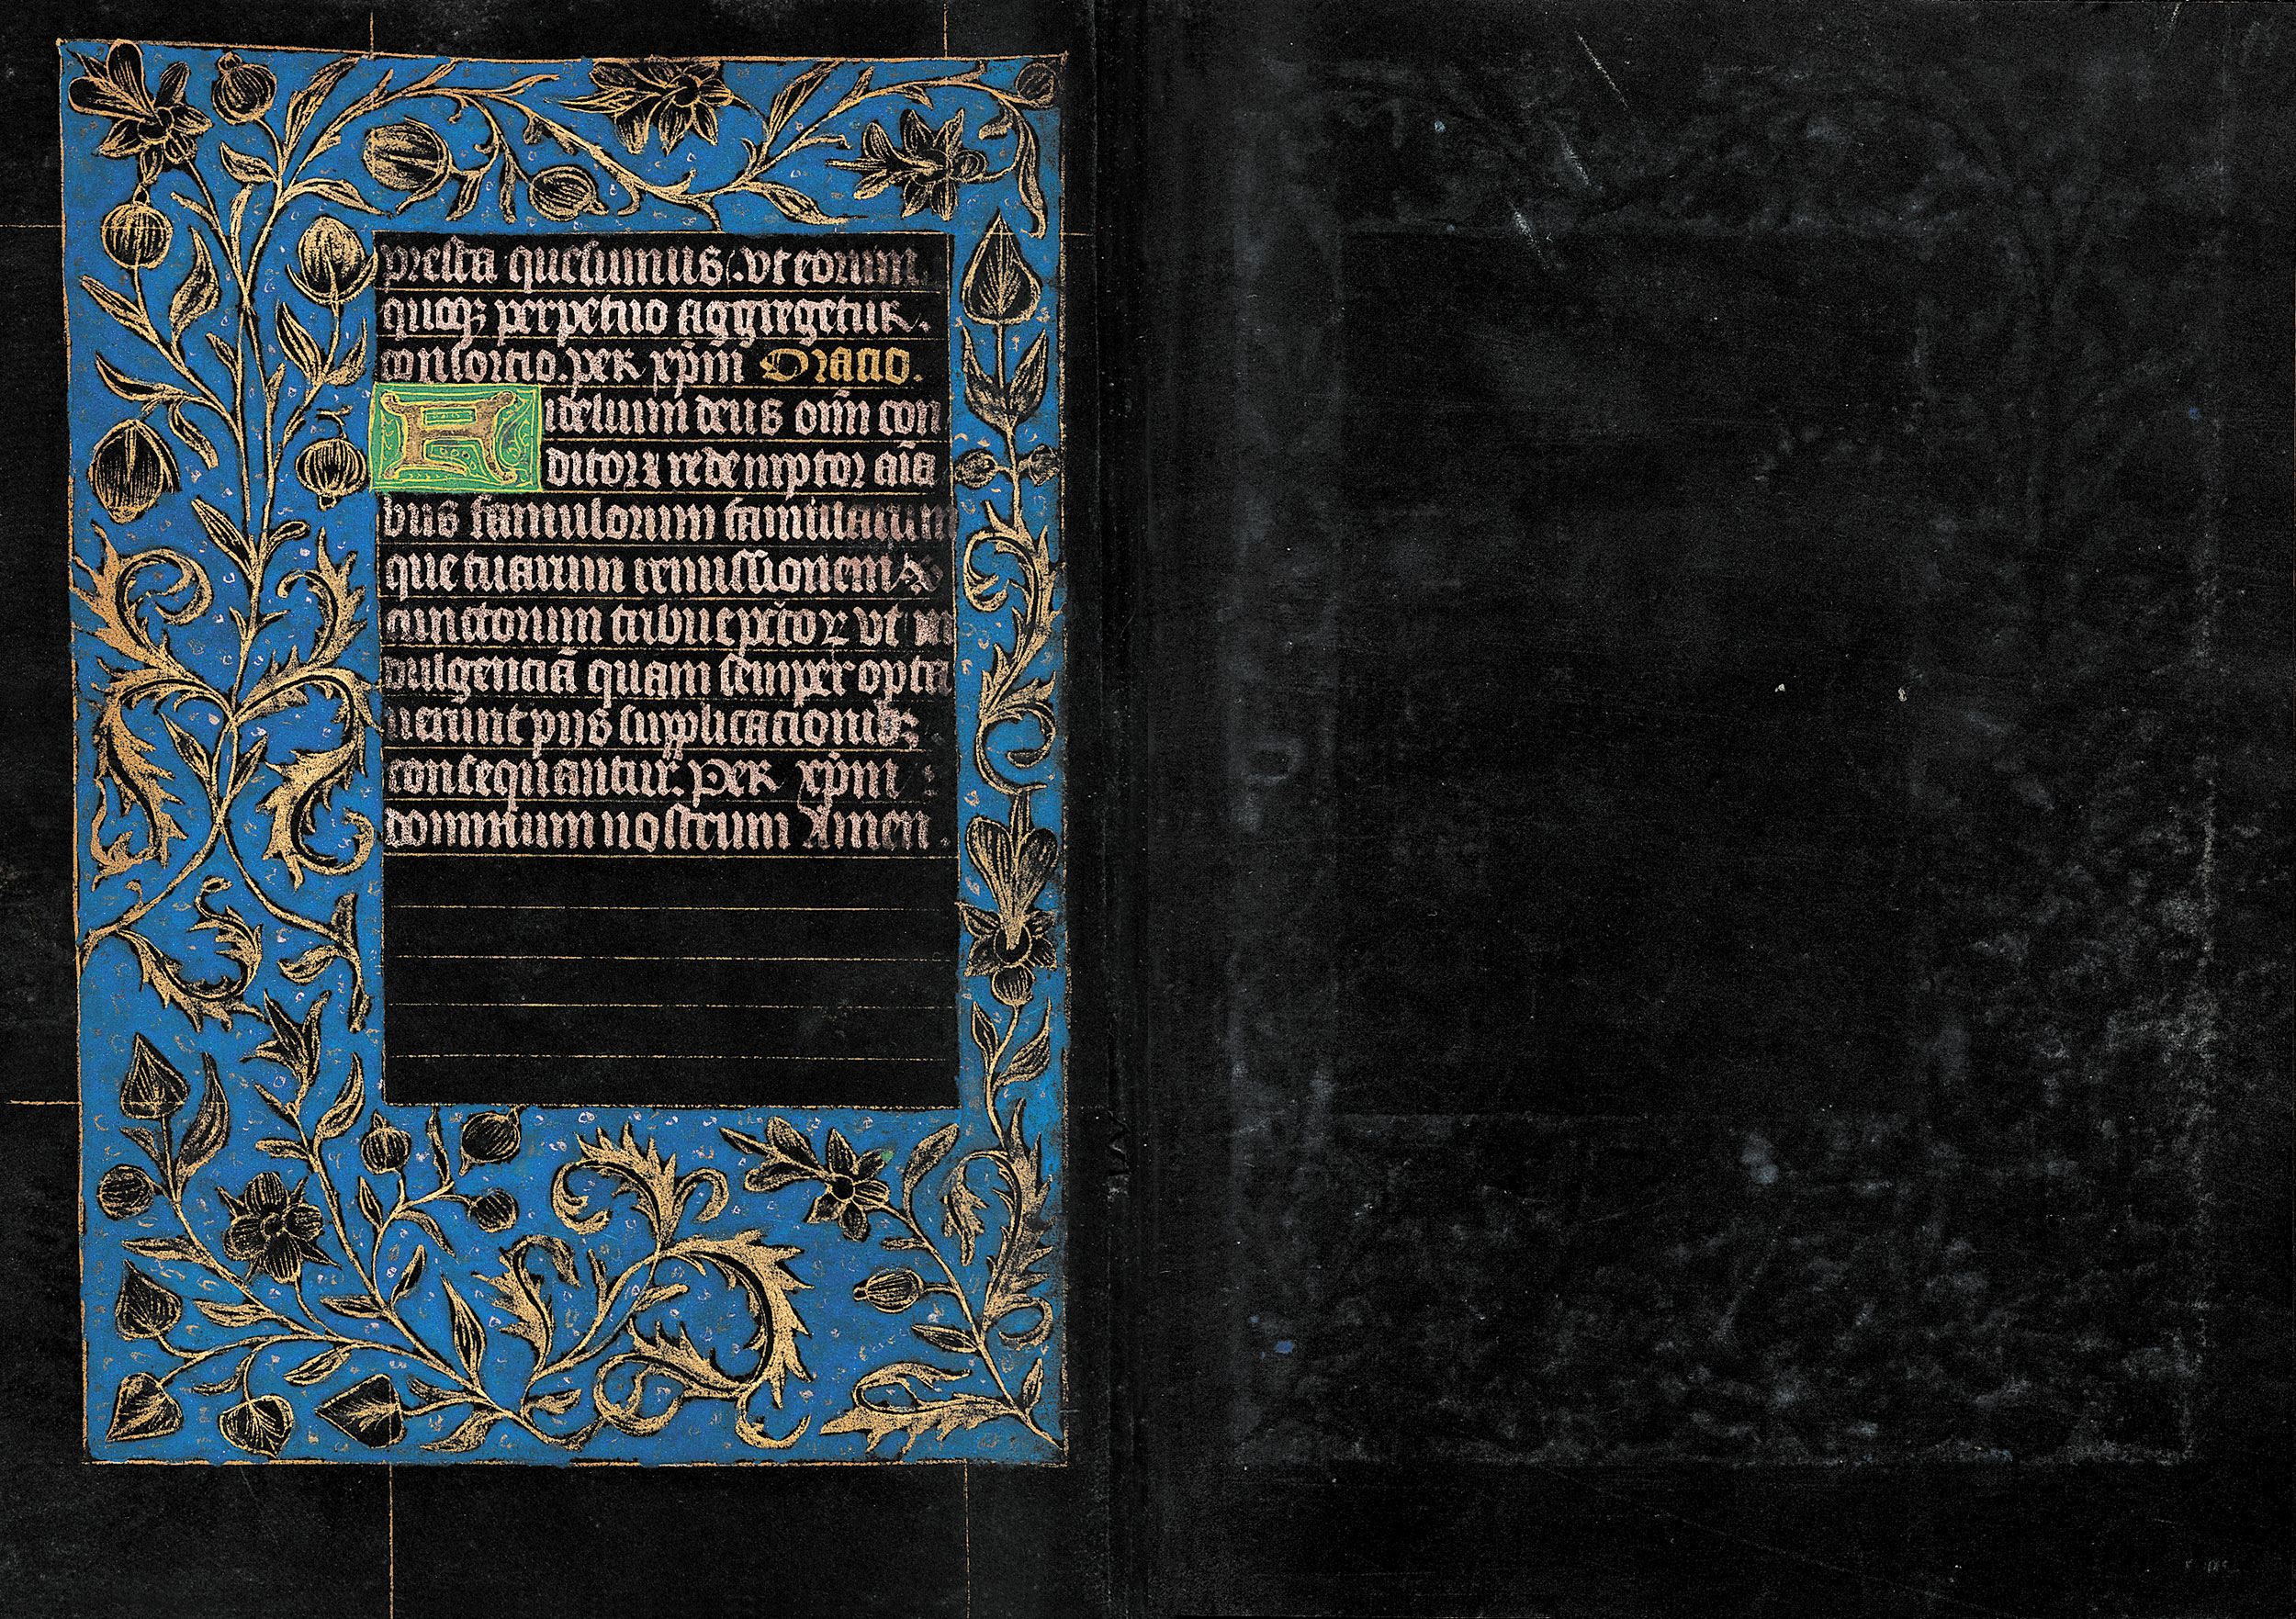 presta quesumus. vt eorum
quoqꝫ perpetuo aggregetur.
consortio. per xp̄m Oracio.
Fidelium deus om̄ con
ditor ⁊ redemptor aīa
bus famulorum famularum
que tuarum remissionem
cunctorum tribue pctōꝝ vt in
dulgenciā quam semper opta
uerunt pijs supplicationibꝫ
consequantur. Per xp̄m
dominum nostrum Amen.